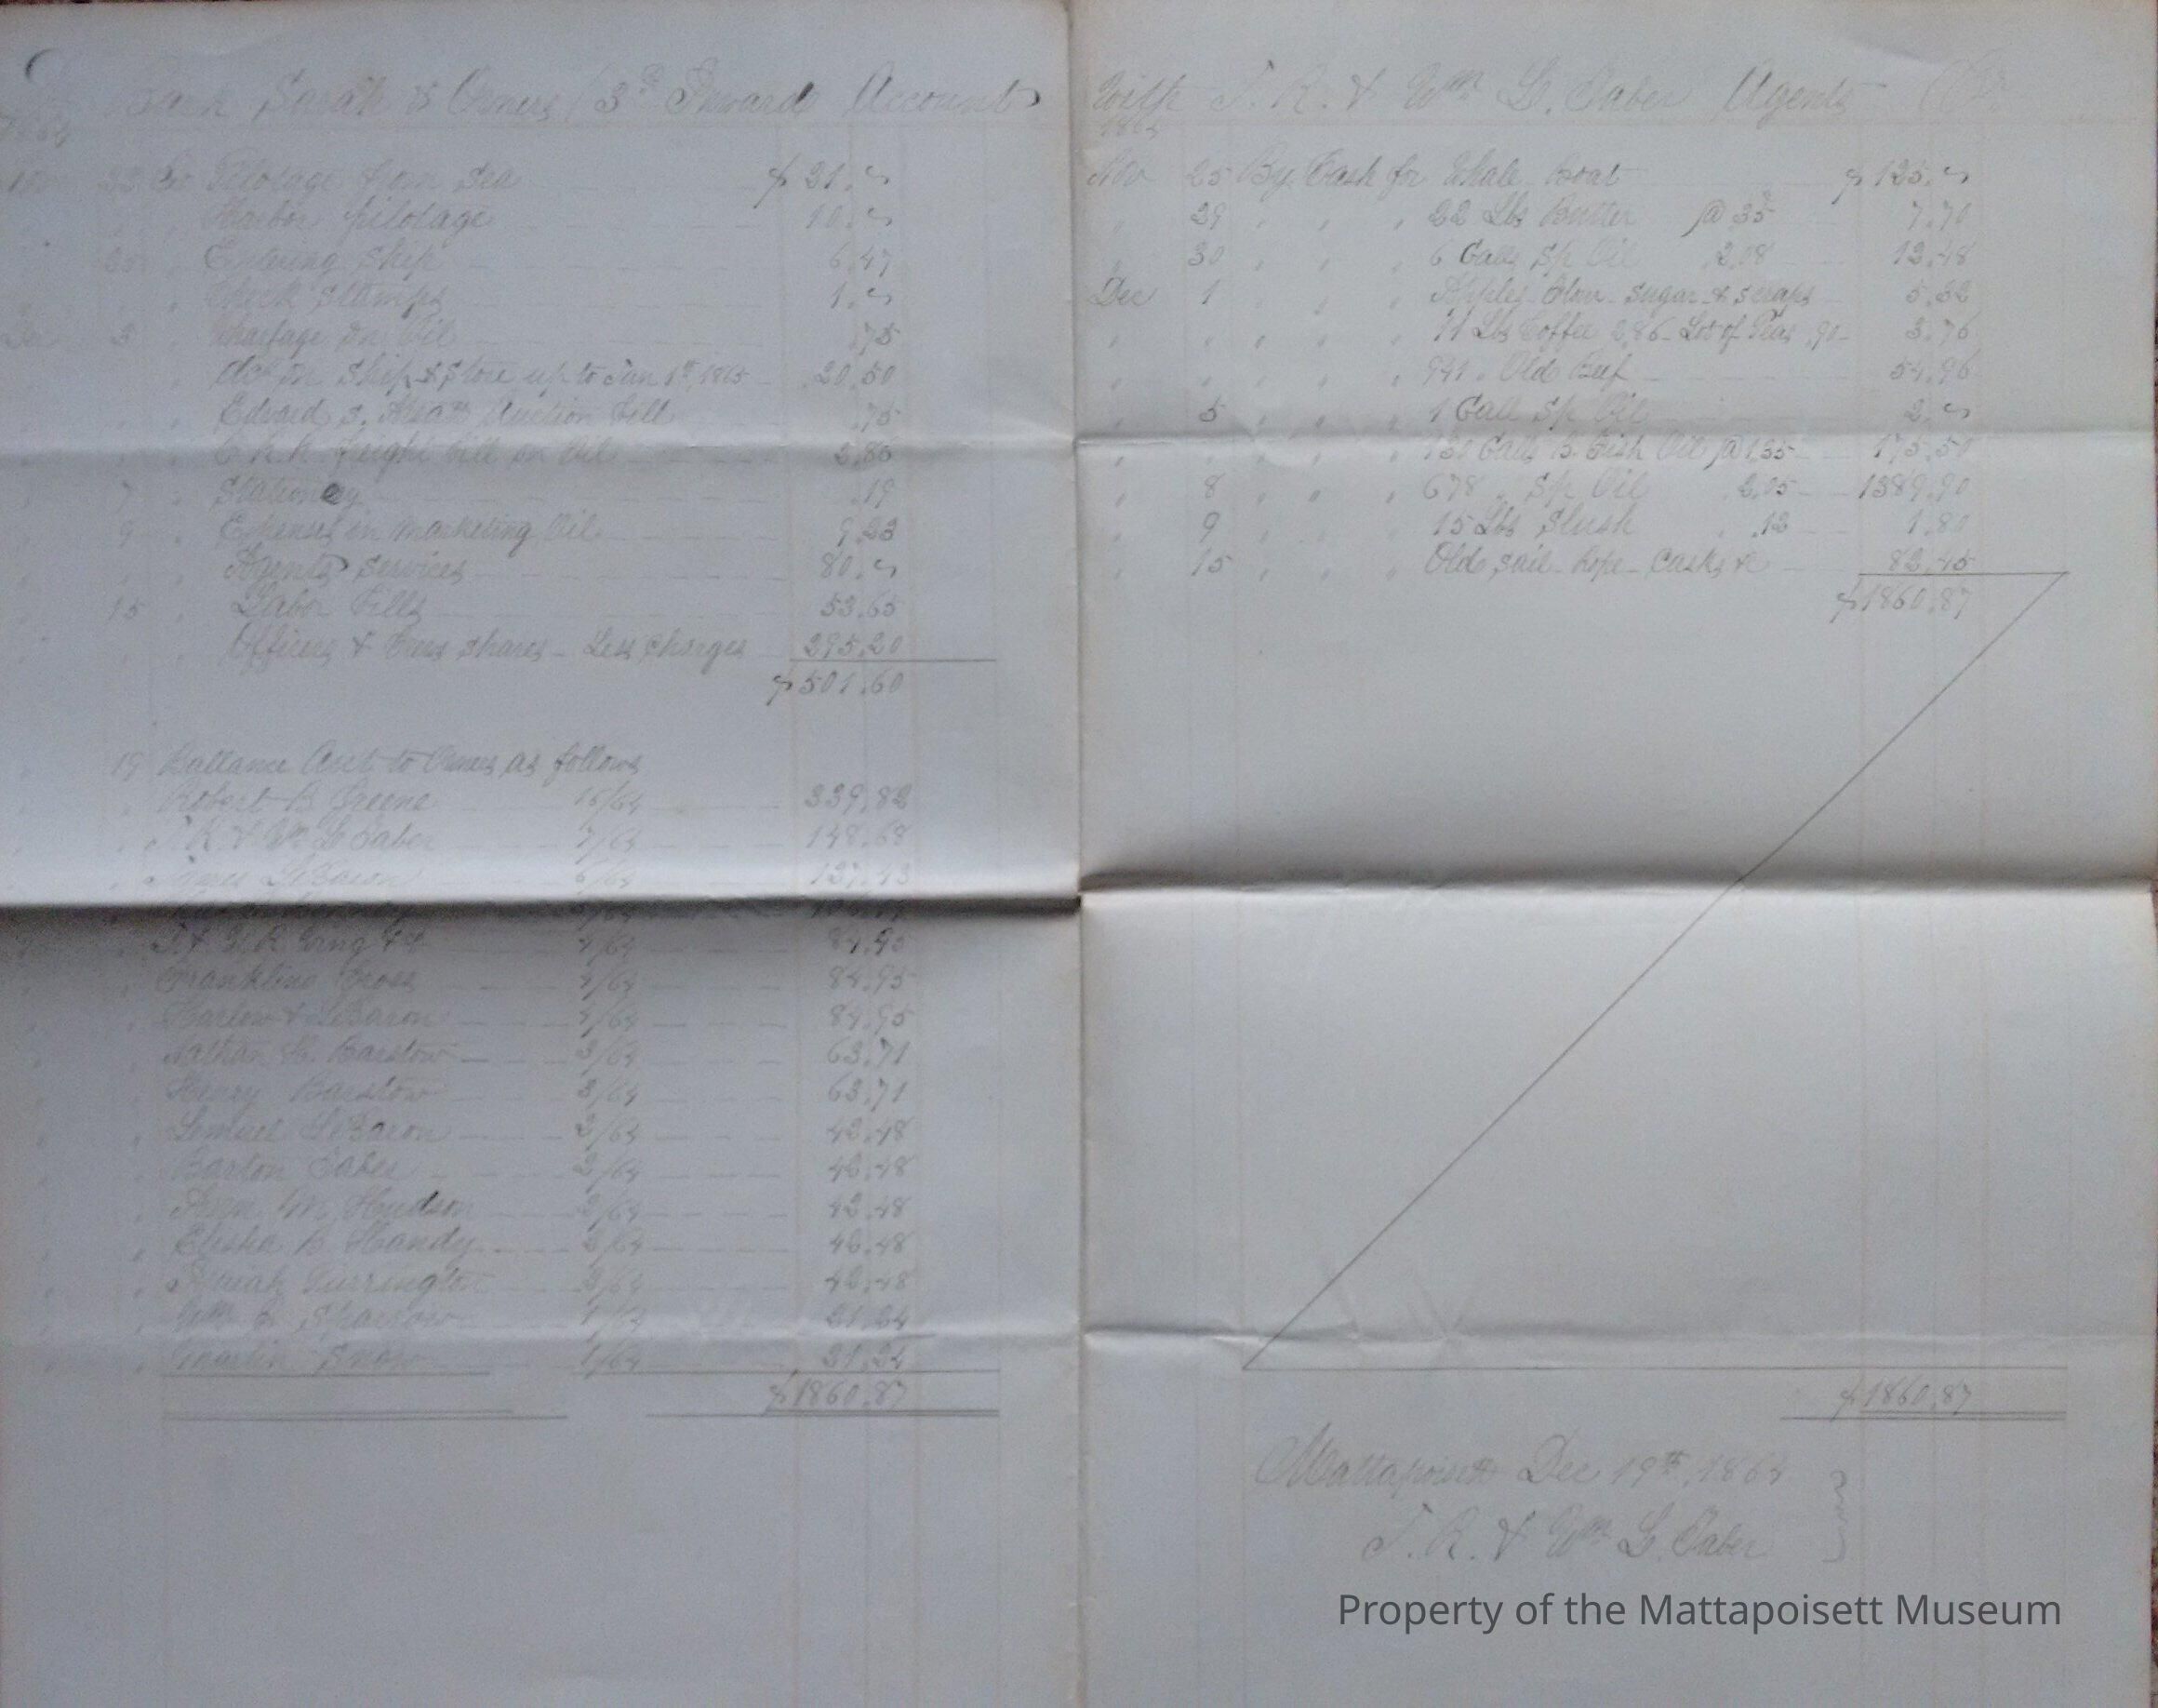 Bark Sarah & Owners (3d Inward Account)
23 To Pilotage from Sea $21.
Harbor pilotage 10.
25 Entering Ship 6.47
Check Stamps 1.
3 Wharfage on Oil .75
on Ship & Store up to Jan 1st, 1865 20.50
Auction Bill .75
freight bill on Oil 2.86
7 Stationery .19
9 Expenses in Marketing Oil 9.23
Agents Services 80.
15 Labor Bills 53.65
Officers & Crews Shares - Less Charges 295.20
$501.60
19 Ballance Acct to Owners as follows
Robert B Greene 16/64 339.82
T. R. & Wm L. Taber 7/64 148.68
James LeBaron
& R. Ring 4/64 84.95
Franklin Cross 4/64 84.95
Barlow & LeBaron 4/64 84.95
Nathan H. Barstow 3/64 63.71
Henry Barstow 3/64 63.71
Lemuel LeBaron 2/64 42.48
Barton Taber 2/64 42.48
M Hudson 2/64 42.48
Elisha B Handy 2/64 42.48
Isaiah Purrington 2/64 42.48
Wm B Sparrow 1/64 21.24
Martin Snow 1/64 21.24
$1860.87
With T. R. & Wm L. Taber Agents Cr.
Nov 25 By Cash for Whale Boat $125.
" 29 " " " 22 Lbs Butter @ 35 7.70
" 30 " " " 6 Galls Sp Oil 2.08 12.48
Dec 1 " " " Apples - Flour - Sugar & Scraps 5.32
" " " " " 11 Lbs Coffee 2.86 - Lot of Peas .90 3.76
" " " " " 941 " Old Beef 54.96
" 5 " " " 1 Gall Sp Oil 2.
" " " " " 130 Galls B. Fish Oil @ 1.35 175.50
" 8 " " " 678 " Sp Oil 2.05 1389.90
" 9 " " " 15 Lbs Slush " .12 1.80
" 15 " " " Old Sail - Rope - Casks &c 82.45
$1860.87
$1860.87
Mattapoisett Dec 19th, 1864
T. R. & Wm L. Taber
Property of the Mattapoisett Museum